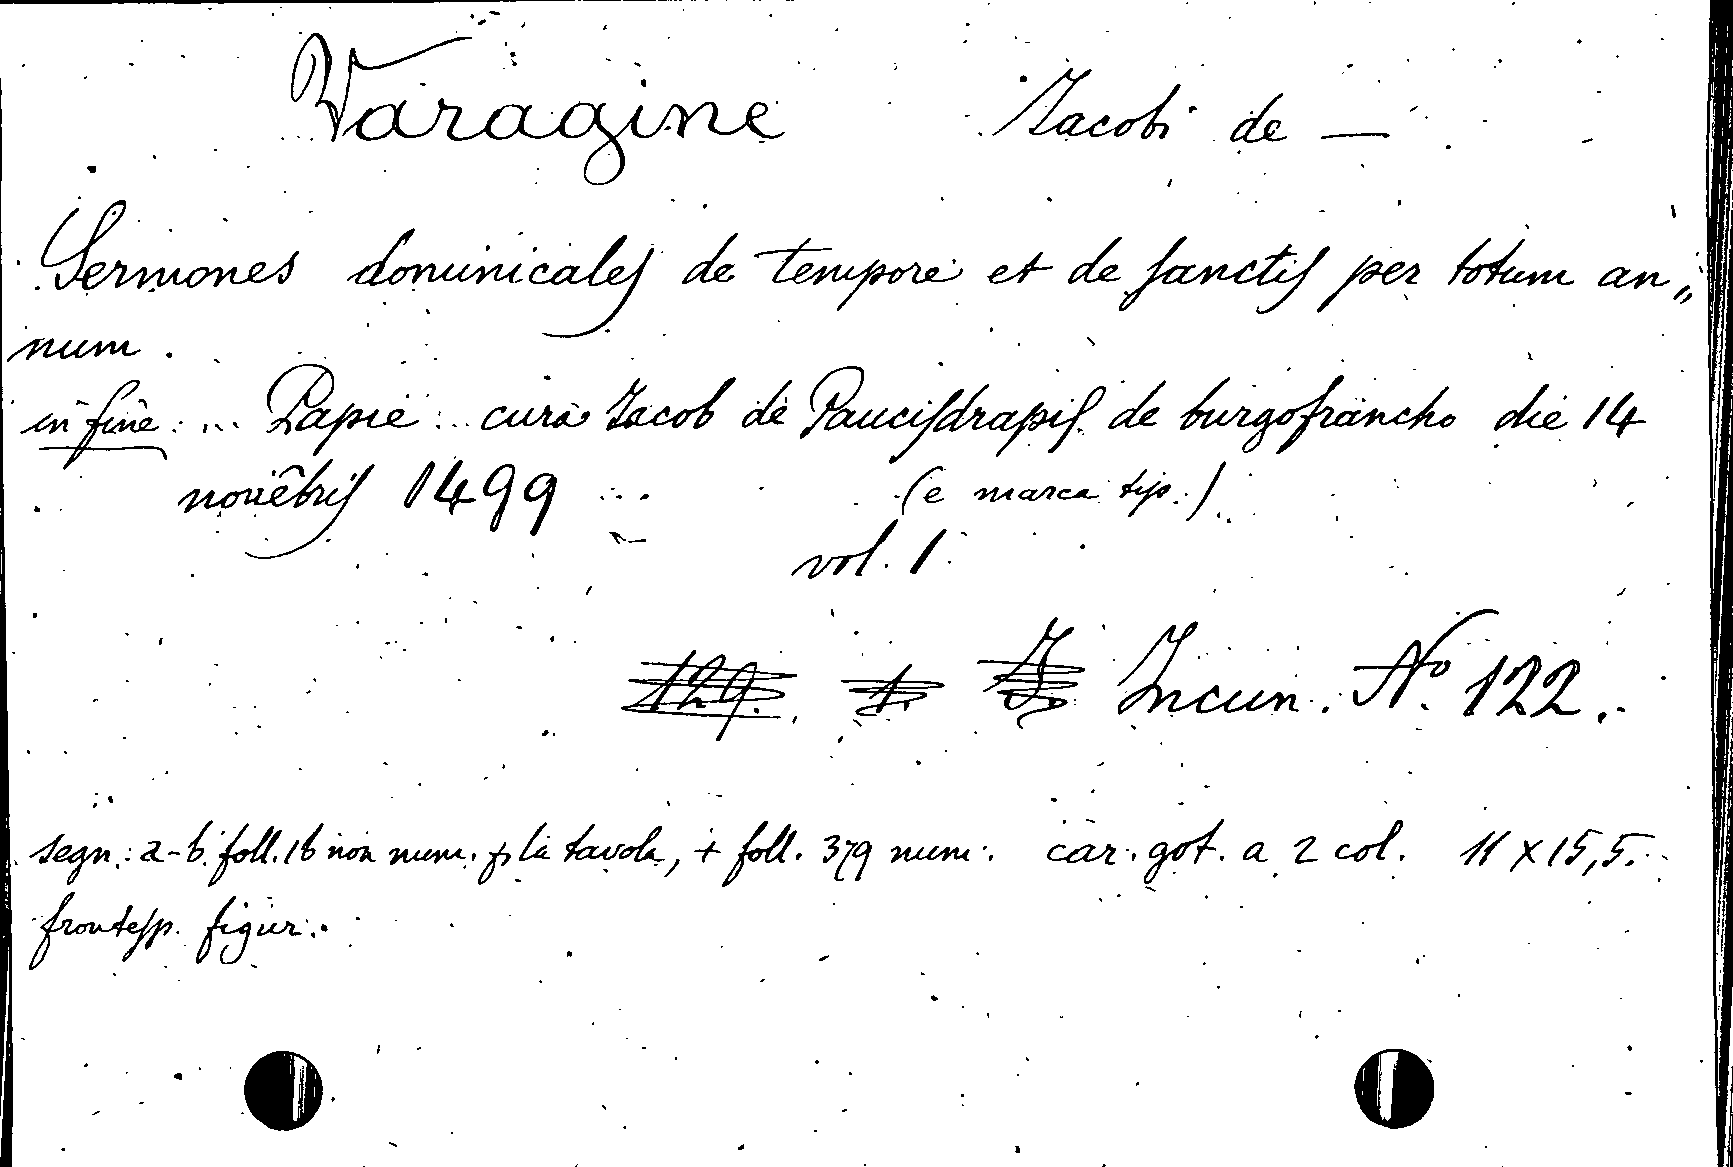 Varagine Jacobi de —
Sermones dominicales de tempore et de sanctis per totum an„
num.
in fine: ... Papie ... cura Jacob de Paucisdrapis de burgofrancho die 14
novêbris 1499 ... (e marca tip.)
vol. 1.
129. 1. I. Incun. Nº 122.
segn.: a-b. foll. 16 non num. p. la tavola, + foll. 379 num. car. got. a 2 col. 11 x 15,5.
frontesp. figur.